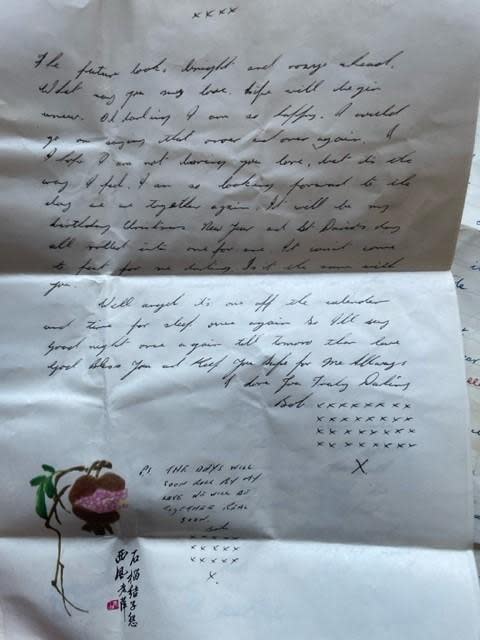 x x x x
The future looks bright and rosy ahead.
What say you my love. Life will begin
anew. Oh darling I am so happy. I could
go on saying that over and over again. 
I hope I am not boring you love, but its the
way I feel. I am so looking forward to the
day we are together again. It will be my
birthday Christmas New Year and St Davids day
all rolled into one for me. It can't come
to fast for me darling Is it the same with
you.
Well angel its one off the calendar
and time for sleep once again So I'll say
Good night once again till tomoro then love
God Bless You and Keep You Safe for Me Always
I Love You Truly Darling
Bob x x x x x x x x x
x x x x x x x x
x x x x x x x x
x x x x x x x x
X
PS THE DAYS WILL
SOON ROLL BY MY
LOVE WE WILL BE
TOGETHER REAL
SOON.
Bob
x x x x x
x x x x x
x x x x x
X.
石榴結子